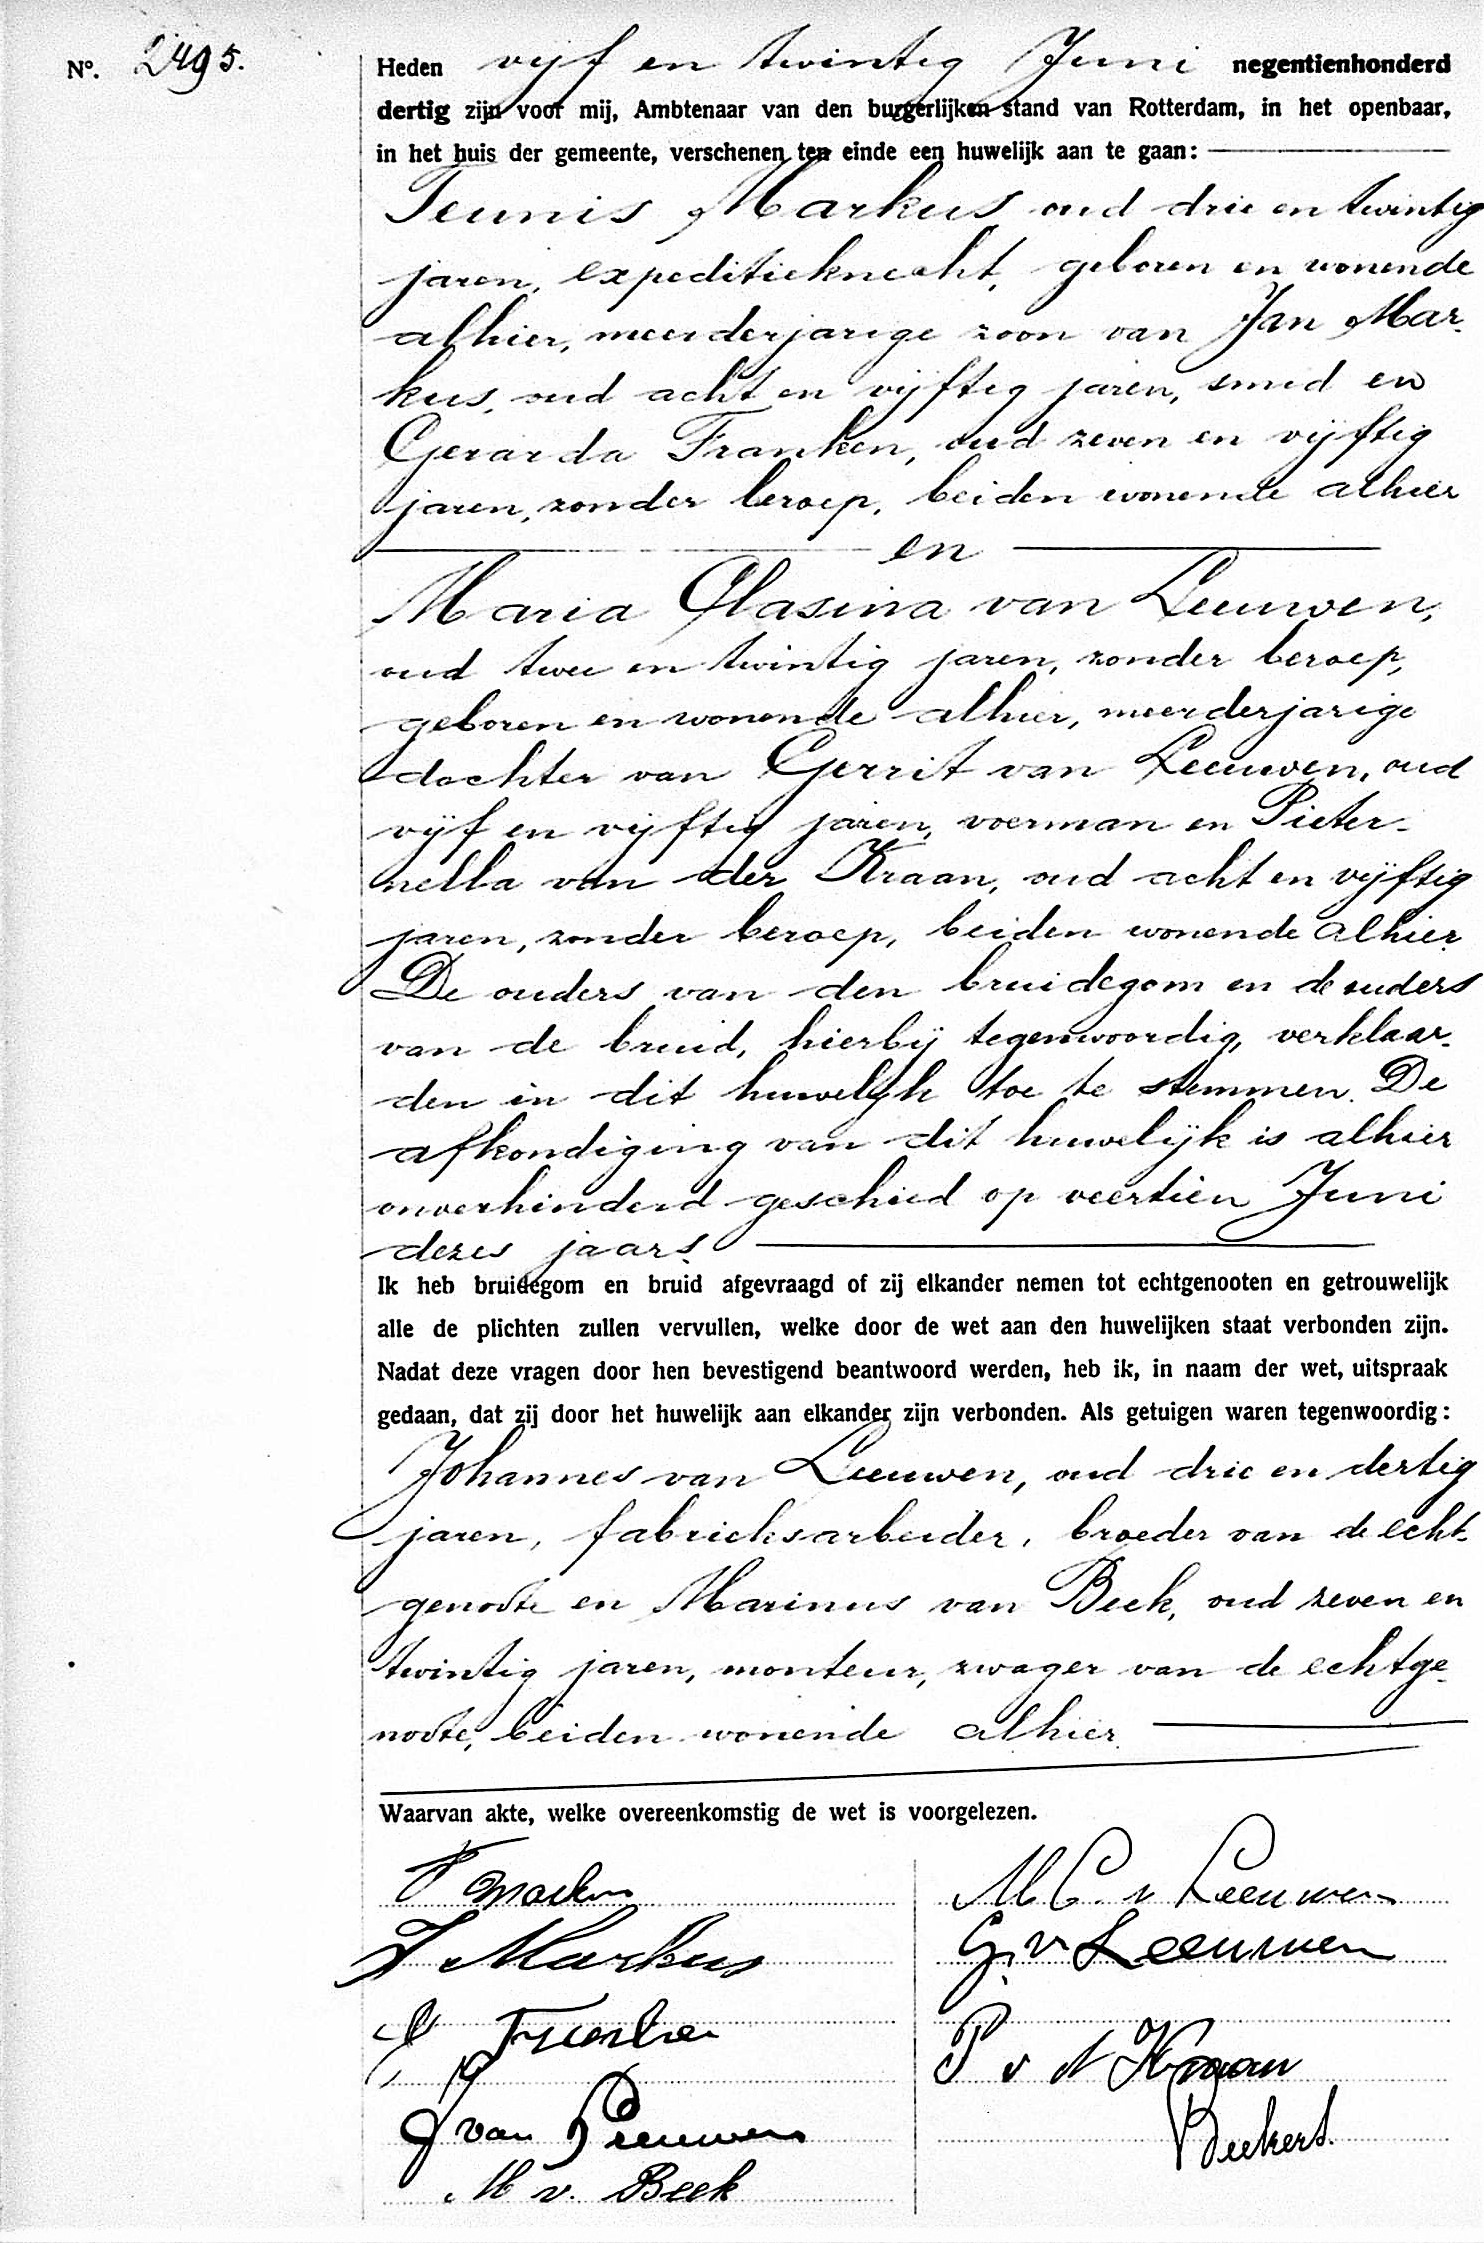 Nº. 2495.
Heden vijf en twintig Juni negentienhonderd
dertig zijn voor mij, Ambtenaar van den burgerlijken stand van Rotterdam, in het openbaar,
in het huis der gemeente, verschenen ten einde een huwelijk aan te gaan:
Teunis Markus oud drie en twintig
jaren, expeditieknecht, geboren en wonende
alhier, meerderjarige zoon van Jan Mar-
kus, oud acht en vijftig jaren, smid en
Gerarda Franken, oud zeven en vijftig
jaren, zonder beroep, beiden wonende alhier
en
Maria Clasina van Leeuwen,
oud twee en twintig jaren, zonder beroep,
geboren en wonende alhier, meerderjarige
dochter van Gerrit van Leeuwen, oud
vijf en vijftig jaren, voerman en Pieter-
nella van der Kraan, oud acht en vijftig
jaren, zonder beroep, beiden wonende alhier.
De ouders van den bruidegom en de ouders
van de bruid, hierbij tegenwoordig, verklaar-
den in dit huwelijk toe te stemmen. De
afkondiging van dit huwelijk is alhier
onverhinderd geschied op veertien Juni
dezes jaars.
Ik heb bruidegom en bruid afgevraagd of zij elkander nemen tot echtgenooten en getrouwelijk
alle de plichten zullen vervullen, welke door de wet aan den huwelijken staat verbonden zijn.
Nadat deze vragen door hen bevestigend beantwoord werden, heb ik, in naam der wet, uitspraak
gedaan, dat zij door het huwelijk aan elkander zijn verbonden. Als getuigen waren tegenwoordig:
Johannes van Leeuwen, oud drie en dertig
jaren, fabrieksarbeider, broeder van de echt-
genoote en Marinus van Beek, oud zeven en
twintig jaren, monteur, zwager van de echtge-
noote, beiden wonende alhier.
Waarvan akte, welke overeenkomstig de wet is voorgelezen.
T Markus
M C. v Leeuwen
J Markus
G. v. Leeuwen
G Franken
P v d Kraan
J van Leeuwen
M v. Beek